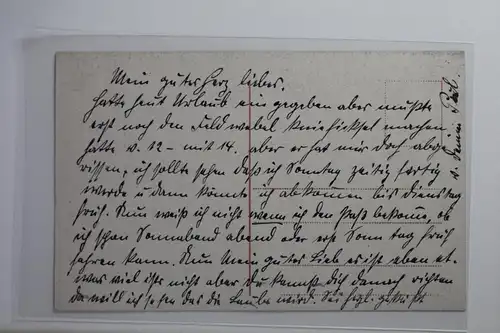 Mein gutes Herz liebes.
Hatte heut Urlaub ein gegeben aber mußte
erst noch den Feld webel machen.
hatte v. 12 – mit 14. aber er hat mir doch abge
wissen, ich sollte sehen daß ich Sonntag zeitig fertig
werde u dann könnte ich abkommen bis Dienstag
früh. Nun weiß ich nicht wenn ich den Paß bekome, ob
ich schon Sonnabend abend oder erst Sonn tag früh
fahren kann. Nun Mein gutes Lieb es ist eben et-
was viel ists nicht aber du kannst dich danach richten
da will ich sehen das die Laube wird. Sei hrzl. geküßt
v. deinem Paul.